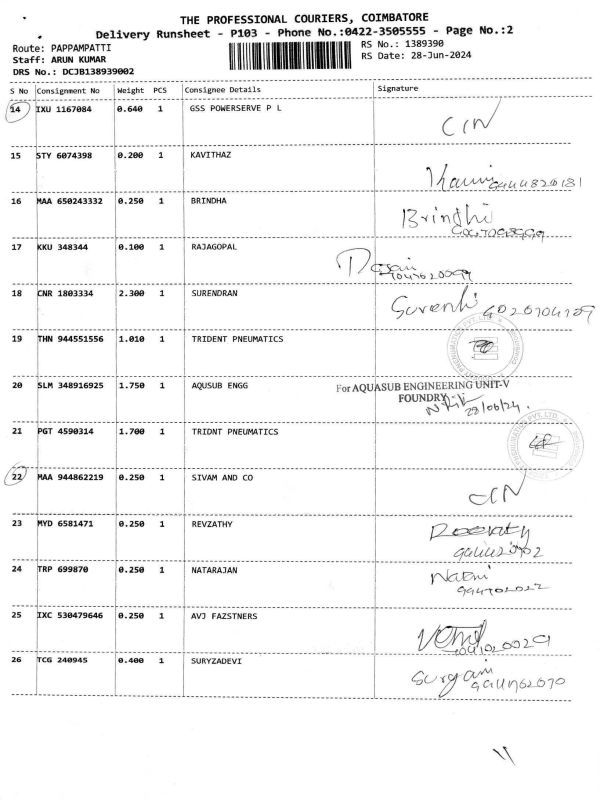 THE PROFESSIONAL COURIERS, COIMBATORE
Delivery Runsheet - P103 - Phone No.:0422-3505555 - Page No.:2
Route: PAPPAMPATTI RS No.: 1389390
Staff: ARUN KUMAR RS Date: 28-Jun-2024
DRS No.: DCJB138939002
S No Consignment No Weight PCS Consignee Details Signature
14 IXU 1167084 0.640 1 GSS POWERSERVE P L
CIN
15 STY 6074398 0.200 1 KAVITHAZ
16 MAA 650243332 0.250 1 BRINDHA
Brindhi
17 KKU 348344 0.100 1 RAJAGOPAL
18 CNR 1803334 2.300 1 SURENDRAN
19 THN 944551556 1.010 1 TRIDENT PNEUMATICS
20 SLM 348916925 1.750 1 AQUSUB ENGG
For AQUASUB ENGINEERING UNIT-V
FOUNDRY
28/06/24.
21 PGT 4590314 1.700 1 TRIDNT PNEUMATICS
22 MAA 944862219 0.250 1 SIVAM AND CO
CIN
23 MYD 6581471 0.250 1 REVZATHY
24 TRP 699870 0.250 1 NATARAJAN
25 IXC 530479646 0.250 1 AVJ FAZSTNERS
26 TCG 240945 0.400 1 SURYZADEVI